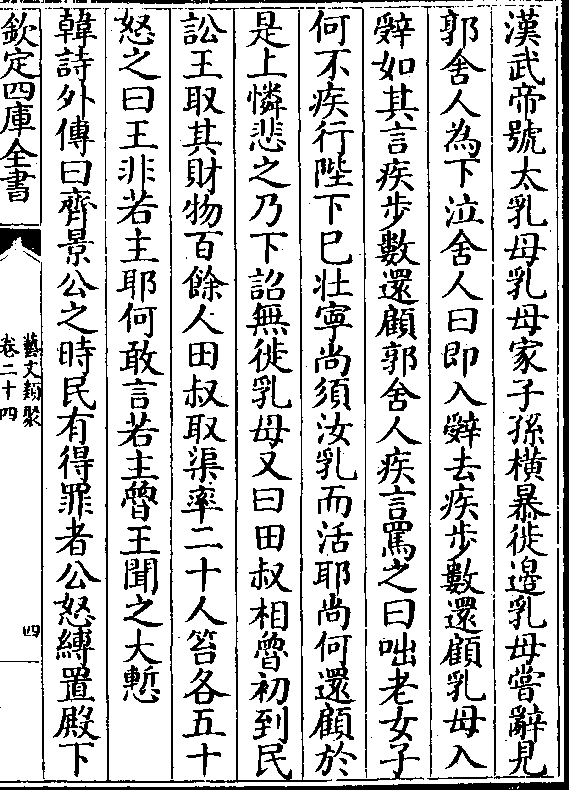 漢武帝號太乳母乳母家子孫橫暴徙邊乳母嘗辭見
郭舍人為下泣舍人曰即入辭去疾步數還顧乳母入
辭如其言疾步數還顧郭舍人疾言罵之曰咄老女子
何不疾行陛下已壯寧尚須汝乳而活耶尚何還顧於
是上憐悲之乃下詔無徙乳母又曰田叔相魯初到民
訟王取其財物百餘人田叔取渠率二十人笞各五十
怒之曰王非若主耶何敢言若主魯王聞之大慙
韓詩外傳曰齊景公之時民有得罪者公怒縛置殿下
欽定四庫全書
藝文類聚
卷二十四
四